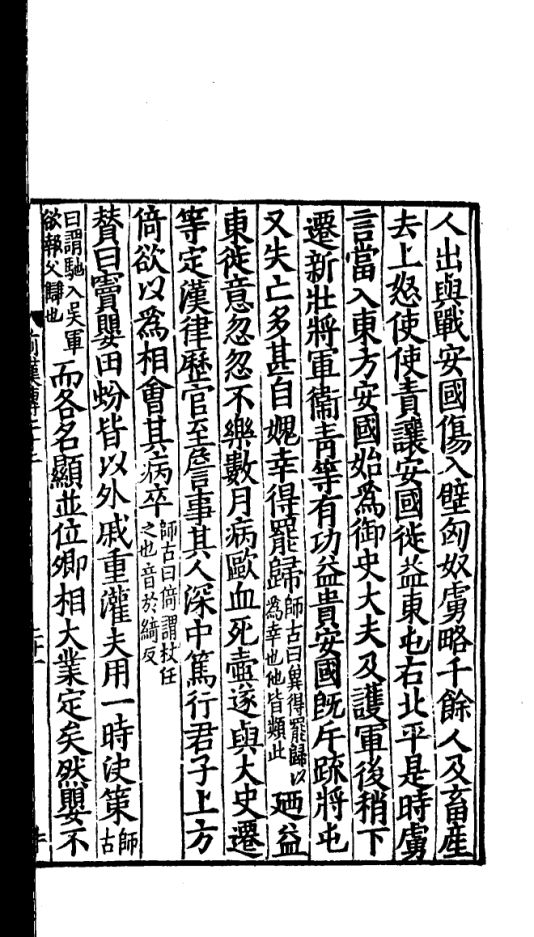 人出與戰安國傷入壁匈奴虜略千餘人及畜産
去上怒使使責讓安國徙益東屯右北平是時虜
言當入東方安國始爲御史大夫及護軍後稍下
遷新壯將軍衞青等有功益貴安國既斥疏將屯
又失亡多甚自媿幸得罷歸師古曰兾得罷歸以爲幸也他皆類此廼益
東徙意忽忽不樂數月病歐血死壷遂與大史遷
等定漢律歷官至詹事其人深中篤行君子上方
倚欲以爲相會其病卒師古曰倚謂杖任之也音於綺反
賛曰竇嬰田蚡皆以外戚重灌夫用一時决策師古
曰謂馳入吴軍欲報父讎也而各名顯並位卿相大業定矣然嬰不
前漢傳二十二
二十一